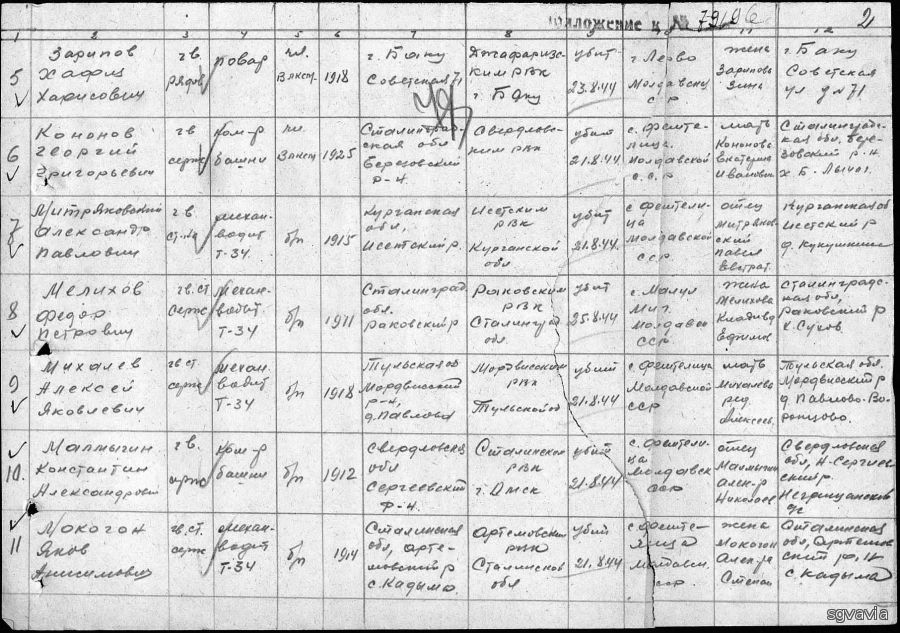 приложение к № 79196
2
1 2 3 4 5 6 7 8 9 10 11 12
5
Зарипов
Хафиз
Харисович
гв.
рядов
повар
чл.
Влксм
1918
г. Баку
Советская 71
Джафаризс-
ким РВК
г. Баку
убит
23.8.44
г. Леово
Молдавск
ССР
жена
Зарипова
Зина
г. Баку
Советская
ул д № 71
6
Кононов
Георгий
Григорьевич
гв
серж
ком-р
башни
чл.
Влксм
1925
Сталинград-
ская обл
Березовский
р-н
Свердловс-
ким РВК
убит
21.8.44
с. Фештели-
ца
Молдавской
с.с.р
мать
Кононова
Екатерина
Ивановн
Сталинградс-
кая обл, Бере-
зовский р-н
х Б. Лычак
7
Митряковский
Александр
Павлович
гв.
ст.
механ-
водит
Т-34
б/п
1915
Курганская
обл,
Исетский р.
Исетским
РВК
Курганской
обл
убит
21.8.44.
с Фештели-
ца
Молдавской
ССР
отец
Митряков-
ский
Павел
Евстрат.
Курганская об
Исетский р
д. Кукушкин
8
Мелихов
Федор
Петрович
гв. ст.
серж
механ-
водит
Т-34
б/п
1911
Сталинград.
обл.
Раковский р
Раковским
РВК
Сталинград
обл
убит
25.8.44
с. Малул
Миг.
Молдавск
ССР
жена
Мелихова
Клавдия
Ефимов
Сталинградс-
кая обл,
Раковский р
х. Сухов
9
Михалев
Алексей
Яковлевич
гв ст
серж
механ-
водит
Т-34
б/п
1918
Тульская об
Мордвесский
р-н,
д. Павлово
Мордвесским
РВК
Тульской об
убит
21.8.44
с. Фештелица
Молдавской
ССР
мать
Михалева
Алексеев.
Тульская обл.
Мордвесский р
д Павлово-Во-
ронцово.
10.
Малмыгин
Константин
Александрович
гв.
серж
ком-р
башни
б/п
1912
Свердловская
обл
Сергеевский
р-н.
Сталинским
РВК
г. Омск
убит
21.8.44
с. Фештели-
ца
Молдавск
ССР
отец
Малмыгин
Алек-р
Николаев
Свердловская
обл, Н-Сергие-
вский р.
11
Мокогон
Яков
Анисимович
гв. ст.
серж
механ-
водит
Т-34
б/п
1914
Сталинская
обл, Арте-
мовский р
с. Кадыма.
Артемовским
РВК
Сталинской
обл
убит
21.8.44
с Феште-
лица
Молдавс.
ССР.
жена
Мокогон
Алек-ра
Степан
Сталинская
обл, Артемов
ский р-н
с. Кадыма
sgvavia